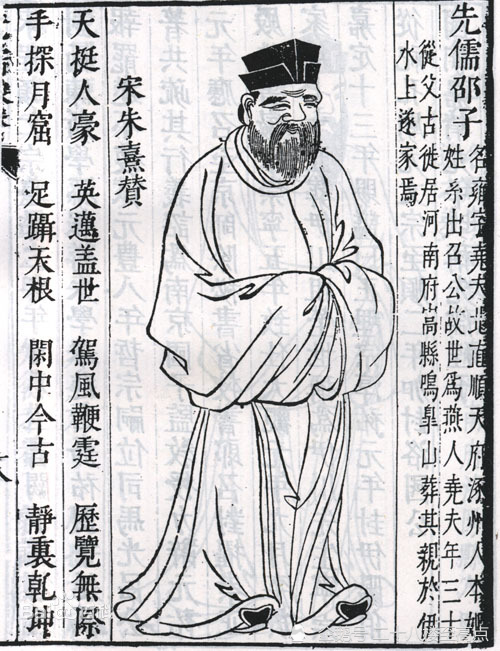 先儒邵子名雍字堯夫遗直順天府涿州人本姬
姓系出召公故世爲燕人堯夫年三十
從父古徙居河南府嵩縣鳴皐山葬其親於伊
水上遂家焉
宋朱熹贊
天挺人豪 英邁盖世 駕風鞭霆 歷覽無際
手探月窟 足躡天根 閑中今古 静裏乾坤